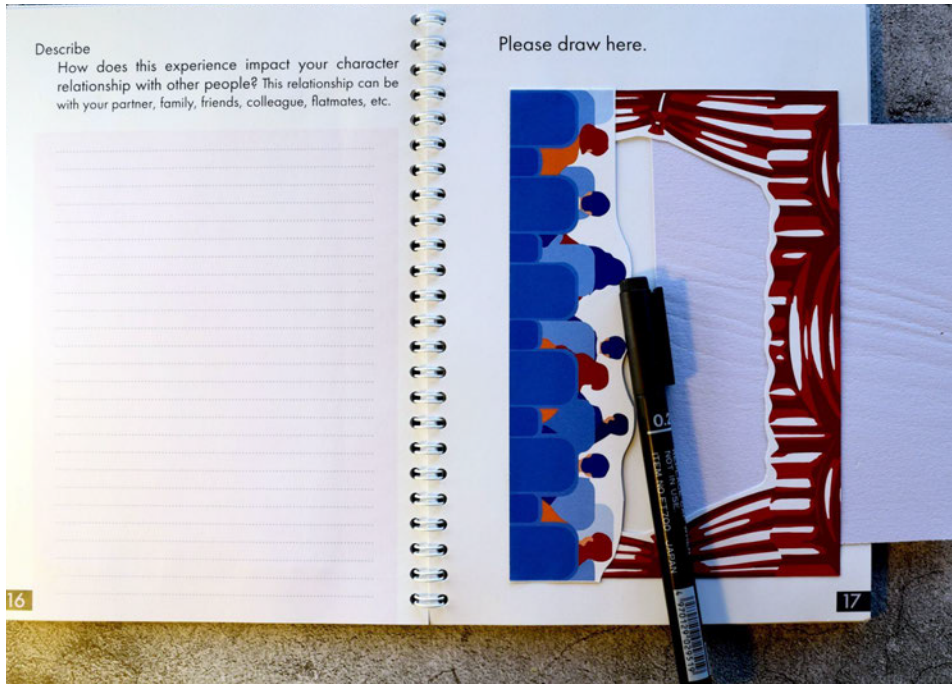 Describe
How does this experience impact your character
relationship with other people? This relationship can be
with your partner, family, friends, colleague, flatmates, etc.
16
Please draw here.
17
NOT IN USE.
ITEM NO.ET200 JAPAN